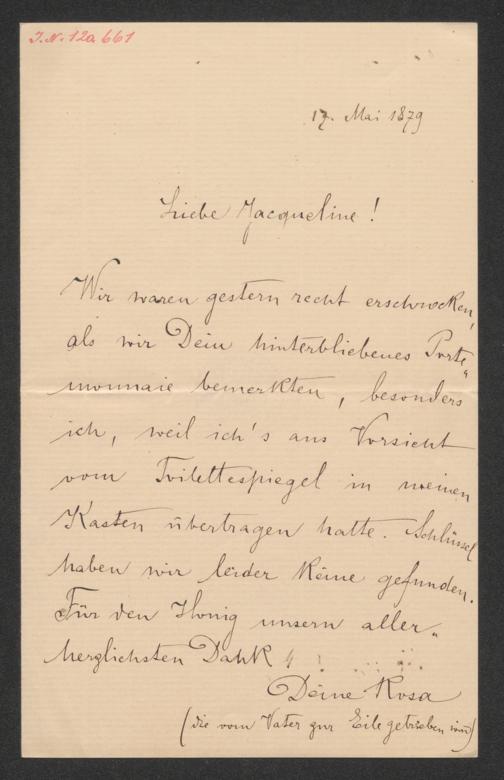 I.N. 120.661
17. Mai 1879
Liebe Jacqueline!
Wir waren gestern recht erschrocken,
als wir Dein hinterbliebenes Porte„
monnaie bemerkten, besonders
ich, weil ich's aus Vorsicht
vom Toilettespiegel in meinen
Kasten übertragen hatte. Schlüssel
haben wir leider keine gefunden.
Für den Honig unsern aller„
herzlichsten Dank
Deine Rosa
(die vom Vater zur Eile getrieben wird)